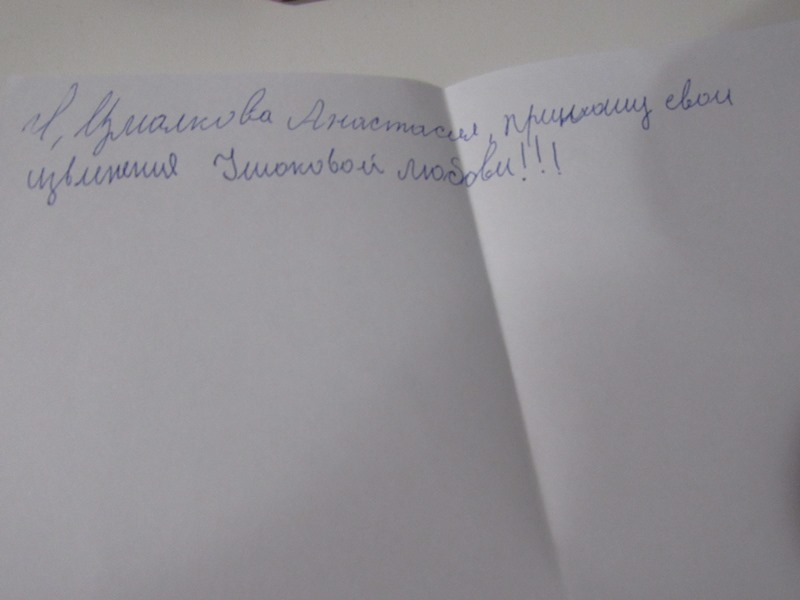 Я, Цмалкова Анастасия, приношу свои
извинения Ушаковой Любови!!!